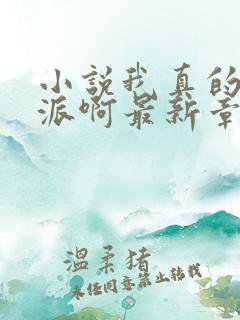 小说我真的
派啊最新章
温柔猪
未经同意禁止转载